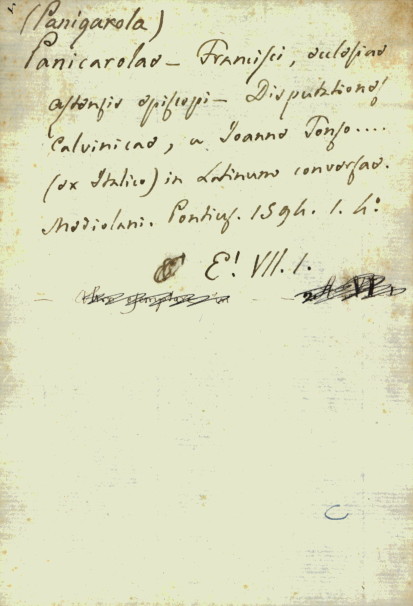 (Panigarola)
Panicarolae – Francisci, ecclesiae
astensis episcopi – Disputationes
Calvinicae, a Joanne Tonso....
(ex Italico) in Latinum conversae.
Mediolani. Pontius. 1594. 1. 4º
E! VII. 1.